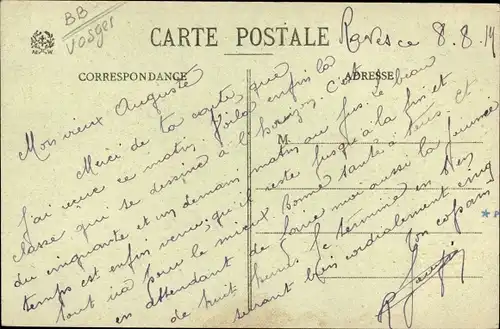 BB
Vosges
CARTE POSTALE
8.8.19
CORRESPONDANCE
ADRESSE
M.
Mon vieux Auguste
Merci de ta carte que
j'ai reçue ce matin. Voilà enfin la
classe qui se dessine à l'horizon. C'est
du cinquante et un demain matin au jus. Le beau
temps est enfin venu, qu'il reste jusqu'à la fin et
tout ira pour le mieux. Bonne santé à tous. Et
en attendant de faire moi aussi la journée
de huit heures je termine en te
serrant bien cordialement cinq
Ton copain